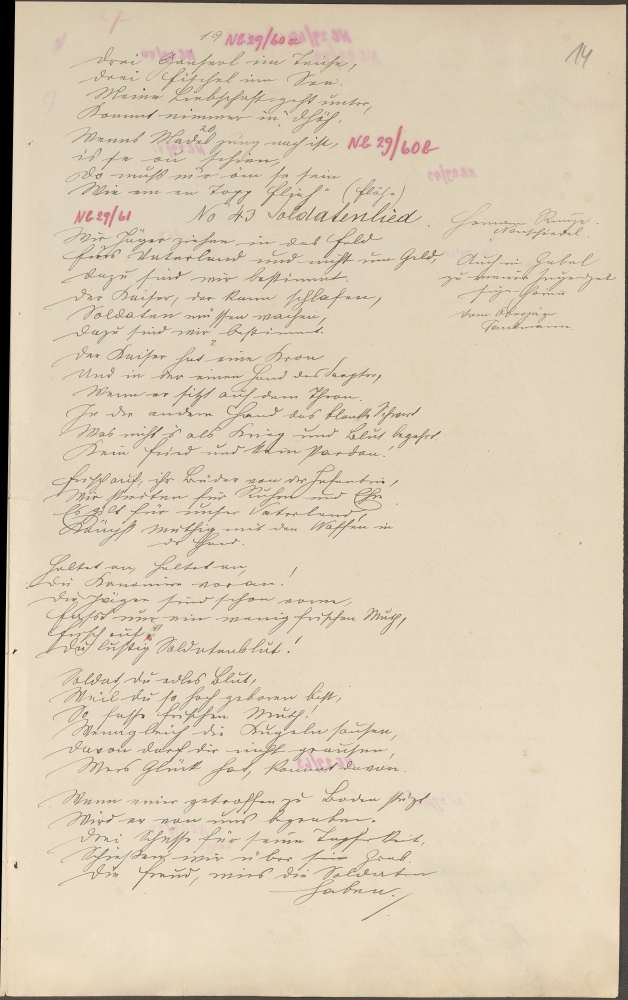 19 NB 29/60a
14
Drei im Teiche,
Drei Fischel im See.
Meine Liebschaft geht unter,
Kommt nimmer in d'Höh.
20
Wenns Madel jung noch ist, NB 29/60b
is se au schien,
Do muß mir öm se sein
Wie em en Topp "Flieh" (Flöhe)
NB 29/61 No 43 Soldatenlied.
Wir Jäger ziehen in das Feld
Fürs Vaterland und nicht um Geld
Dazu sind wir bestimmt.
Der Kaiser, der kann schlafen,
Soldaten müssen wachen,
Dazu sind wir bestimmt.
Der Kaiser hat eine Kron
Und in der einen Hand das Szepter,
Wenn er sitzt auf dem Thron.
In der andern Hand das blanke Schwert
Was nichts als Krieg und Blut begehrt
Kein Fried und kein Pardon!
Frisch auf, ihr Brüder von der Infantrie,
Wir streiten für Ruhm und Ehr
Es gilt für unser Vaterland,
Kämpft muthig mit den Waffen in
der Hand.
Haltet an, haltet an,
Die Kanonier voran!
Die Jäger sind schon vorne,
Faßt nur ein wenig frischen Muth,
Frisch auf,
Du lustig Soldatenblut!
Soldat du edles Blut,
Weil du so hoch geboren bist,
So fasse frischen Muth!
Wenngleich die Kugeln sausen,
Davon darf dir nicht grausen,
Wers Glück hat, kommt davon.
Wenn einer getroffen zu Boden stürzt
Wird er von uns begraben.
Drei Schüsse für seine Tapferkeit,
Schießen wir über sein Grab.
Die Freud, wies die Soldaten
haben.